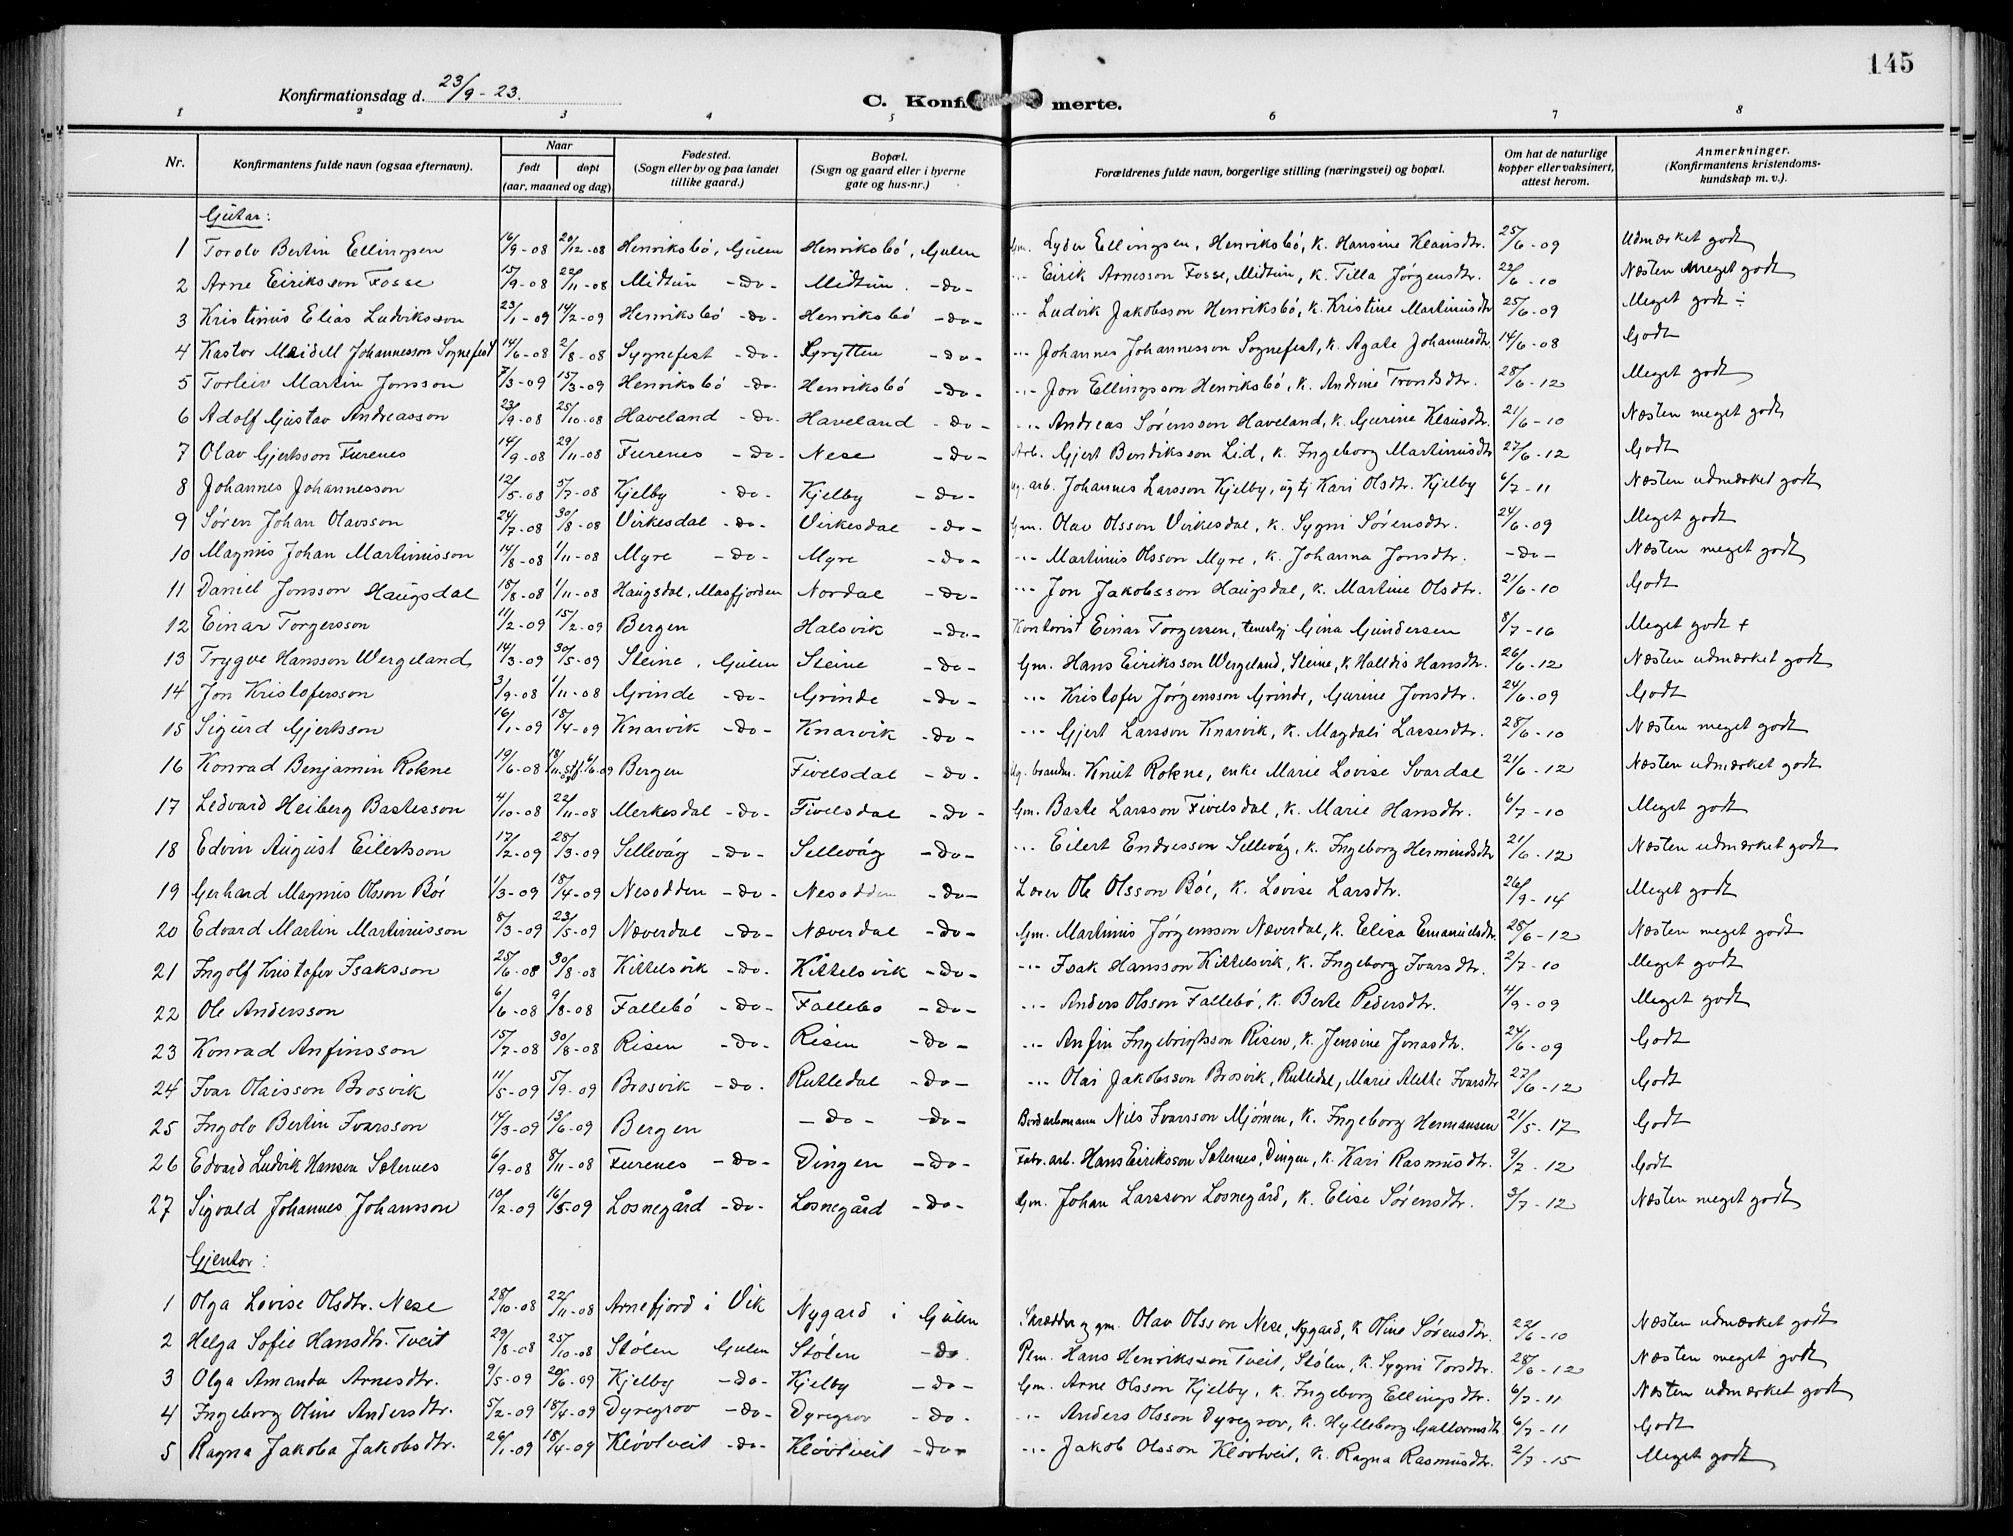 145
Konfirmationsdag d. 23/9 - 23.
C. Konfi merte.
1 2 3 4 5 6 7 8
Nr. | Konfirmantens fulde navn (ogsaa efternavn). | Naar født døpt (aar, maaned og dag) | Fødested. (Sogn eller by og paa landet tillike gaard.) | Bopæl. (Sogn og gaard eller i byerne gate og hus-nr.) | Forældrenes fulde navn, borgerlige stilling (næringsvei) og bopæl. | Om hat de naturlige kopper eller vaksinert, attest herom. | Anmerkninger. (Konfirmantens kristendoms-kundskap m. v.).
Gutar:
1 Torolv Bertin Ellingsen 16/9-08 20/12-08 Henriksbö, Gulen Henriksbö, Gulen Gm. Lyder Ellingsen, Henriksbö, K. Hansine Klausdtr. 25/6-09 Udmærket godt
2 Arne Eiriksson Fosse 15/9-08 22/11-08 Midtun -do- Midtun. -do- -"- Eirik Arnesson Fosse, Midtun, K. Tilla Jørgensdtr. 22/6-10 Næsten meget godt
3 Kristinus Elias Ludviksson 23/1-09 14/2-09 Henriksbö -do- Henriksbö -do- -"- Ludvik Jakobsson Henriksbö, K. Kristine Martinusdtr 25/6-09 Meget godt ÷
4 Kastor Meidell Johannesson Sognefest 14/6-08 2/8-08 Sygnefest -do- Grytten -do- -"- Johannes Johannesson Sognefest, K. Agate Johannesdtr 14/6-08 Godt
5 Torleiv Martin Jonsson 7/3-09 15/3-09 Henriksbö -do- Henriksbö -do- -"- Jon Ellingsson Henriksbö, K. Andrine Trondsdtr. 28/6-12 Meget godt
6 Adolf Gustav Andreasson 23/9-08 25/10-08 Haveland -do- Haveland -do- -"- Andreas Sørensson Haveland, K. Gurine Klausdtr. 21/6-10 Næsten meget godt
7 Olav Gjertsson Furenes 14/9-08 29/11-08 Furenes -do- Nese -do- Arb. Gjert Bendiksson Lid, K. Ingeborg Martinusdtr 27/6-12 Godt
8 Johannes Johannesson 12/5-08 5/7-08 Kjelby -do- Kjelby -do- ug. arb. Johannes Larsson Kjelby, ug tj Kari Olsdtr. Kjelby 6/7-11 Næsten udmærket godt
9 Søren Johan Olavsson 24/7-08 30/8-08 Virkesdal -do- Virkesdal -do- Gm. Olav Olsson Virkesdal, K. Sygni Sørensdtr. 24/6-09 Meget godt
10 Magnus Johan Martinusson 14/8-08 1/11-08 Myre -do- Myre -do- -"- Martinus Olsson Myre, K. Johanna Jonsdtr. -do- Næsten meget godt
11 Daniel Jonsson Haugsdal 18/8-08 1/11-08 Haugsdal, Masfjorden Nordal -do- -"- Jon Jakobsson Haugsdal, K. Martine Olsdtr. 21/6-10 Godt
12 Einar Torgersson 11/2-09 15/2-09 Bergen Halsvik -do- Kontorist Einar Torgersen, tenestgj Gina Gundersen 8/7-16 Meget godt +
13 Trygve Hansson Wergeland 14/3-09 30/5-09 Steine, Gulen Steine -do- Gm. Hans Eiriksson Wergeland, Steine, K. Halldis Hansdtr. 26/6-12 Næsten udmærket godt
14 Jon Kristofersson 3/9-08 1/11-08 Grinde -do- Grinde -do- -"- Kristofer Jørgensson Grinde, Gurine Jonsdtr. 24/6-09 Godt
15 Sigurd Gjertsson 16/1-09 18/4-09 Knarvik -do- Knarvik -do- -"- Gjert Larsson Knarvik, K. Magdali Lassesdtr. 28/6-10 Næsten meget godt
16 Konrad Benjamin Rokne 19/6-08 18/11 stf. 6/6-09 Bergen Fivelsdal -do- Ug. brandm. Knut Rokne, enke Marie Lovise Svardal 21/6-12 Næsten udmærket godt
17 Ledvard Heiberg Bastesson 4/10-08 22/11-08 Merkesdal -do- Fivelsdal -do- Gm. Baste Larsson Fivelsdal, K. Marie Hansdtr. 6/7-10 Meget godt
18 Edvin August Eilertsson 17/2-09 28/3-09 Sellevåg -do- Sellevåg -do- -"- Eilert Endresson Sellevåg, K. Ingeborg Hermundsdtr 21/6-12 Næsten udmærket godt
19 Gerhard Magnus Olsson Böe 1/3-09 18/4-09 Nesodden -do- Nesodden -do- Lærer Ole Olsson Böe, K. Lovise Larsdtr. 26/9-14 Meget godt
20 Edvard Martin Martinusson 8/3-09 23/5-09 Næverdal -do- Næverdal -do- Gm. Martinus Jörgensson Næverdal, K. Elisa Emanuelsdtr. 28/6-12 Næsten meget godt
21 Ingolf Kristofer Isaksson 25/6-08 30/8-08 Kittelsvik -do- Kittelsvik -do- -"- Isak Hansson Kittelsvik, K. Ingeborg Ivarsdtr. 2/7-10 Meget godt
22 Ole Andersson 6/6-08 9/8-08 Fallebö -do- Fallebo -do- -"- Anders Olsson Fallebö, K. Berte Pedersdtr. 4/9-09 Meget godt
23 Konrad Anfinsson 15/7-08 30/8-08 Risen -do- Risen -do- -"- Anfin Ingebrigtsson Risen, K. Jensine Jonasdtr. 24/6-09 Godt
24 Ivar Olaisson Brosvik 11/5-09 5/9-09 Brosvik -do- Rutledal -do- -"- Olai Jakobsson Brosvik, Rutledal, Marie Alette Ivarsdtr 27/6-12 Godt
25 Ingolv Bertin Ivarsson 14/3-09 13/6-09 Bergen -do- -do- Bordarbmann Nils Ivarsson Mjömen, K. Ingeborg Hermansen 21/5-17 Godt
26 Edvard Ludvik Hansen Sæternes 6/9-08 8/11-08 Furenes -do- Dingen -do- Fabr. arb. Hans Eiriksson Sæternes, Dingen, K. Kari Rasmusdtr. 9/7-12 Godt
27 Sigvald Johannes Johansson 10/2-09 16/5-09 Losnegård -do- Losnegård -do- Gm. Johan Larsson Losnegård, K. Elise Sörensdtr. 3/7-12 Næsten meget godt
Gjentor:
1 Olga Lovise Olsdtr. Nese 28/10-08 22/11-08 Arnefjord i Vik Nygard i Gulen Skrædder og gm. Olav Olsson Nese, Nygard, K Oline Sørensdtr. 22/6-10 Næsten udmærket godt
2 Helga Sofie Hansdtr. Tveit 29/8-08 25/10-08 Stølen Gulen Stølen -do- Plm. Hans Henriksson Tveit, Stølen, K. Sygni Torsdtr. 28/6-12 Næsten meget godt
3 Olga Amanda Arnesdtr. 9/5-09 20/6-09 Kjelby -do- Kjelby -do- Gm. Arne Olsson Kjelby, K. Ingeborg Ellingsdtr. 6/7-11 Næsten udmærket godt
4 Ingeborg Oline Andersdtr. 5/2-09 18/4-09 Dyregrov -do- Dyregrov -do- -"- Anders Olsson Dyregrov, K. Hylleborg Guttormsdtr 6/7-11 Godt
5 Ragna Jakoba Jakobsdtr. 26/1-09 18/4-09 Klövtveit -do- Klövtveit -do- -"- Jakob Olsson Klövtveit, K. Ragna Rasmusdtr. 2/7-15 Meget godt